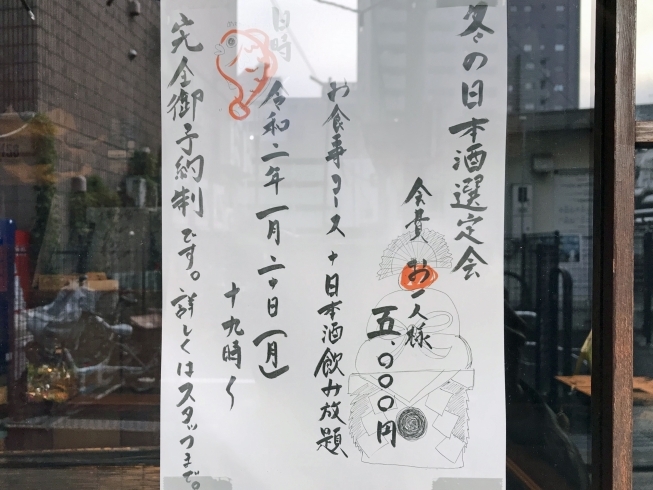 冬の日本酒選定会
会費 お一人様
五.〇〇〇円
お食事コース+日本酒飲み放題
日時
令和二年一月二十日(月)
十九時〜
完全御予約制です。詳しくはスタッフまで。